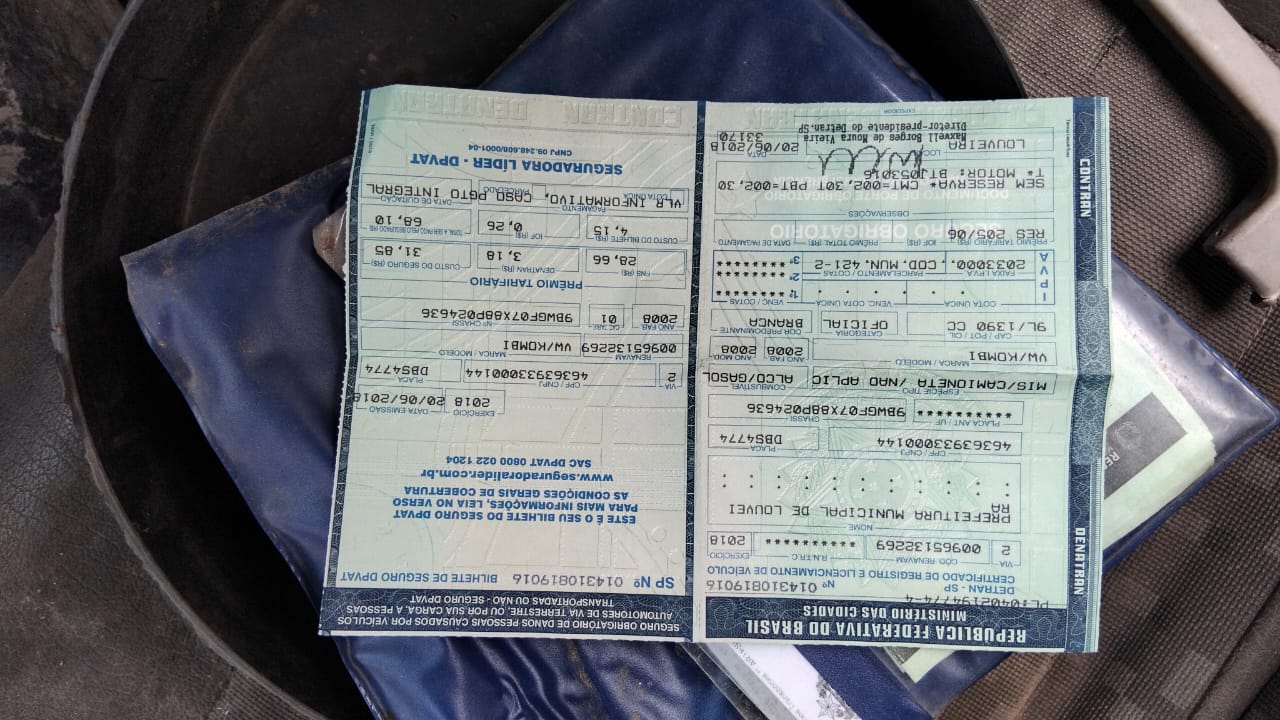 REPÚBLICA FEDERATIVA DO BRASIL
MINISTÉRIO DAS CIDADES
PL:0402194774-4
DETRAN - SP Nº 014310819016
CERTIFICADO DE REGISTRO E LICENCIAMENTO DE VEÍCULO
VIA CÓD. RENAVAM R.N.T.R.C. EXERCÍCIO
2 00965132269 ********** 2018
NOME
PREFEITURA MUNICIPAL DE LOUVEI
RA
CPF / CNPJ PLACA
46363933000144 DBS4774
PLACA ANT / UF CHASSI
********** 9BWGF07X88P024636
ESPÉCIE TIPO COMBUSTÍVEL
MIS/CAMIONETA /NAO APLIC ALCO/GASOL
MARCA / MODELO ANO FAB ANO MOD
VW/KOMBI 2008 2008
CAP / POT / CIL CATEGORIA COR PREDOMINANTE
9L/1390 CC OFICIAL BRANCA
IPVA
COTA ÚNICA VENC. COTA ÚNICA VENC / COTAS
1ª ********
FAIXA I.P.V.A. PARCELAMENTO / COTAS 2ª ********
2033000. COD. MUN. 421-2 3ª ********
PRÊMIO TARIFÁRIO (R$) IOF (R$) PRÊMIO TOTAL (R$) DATA DE PAGAMENTO
RES 20/06
SEGURO OBRIGATÓRIO
OBSERVAÇÕES
DOCUMENTO DE PORTE OBRIGATÓRIO
SEM RESERVA* CMT=002,30T PBT=002,30
T* MOTOR: BTJ053016
LOCAL DATA
LOUVEIRA 20/06/2018
Maxwell Borges de Moura Vieira 33170
Diretor-presidente do Detran.SP
EXPEDIDOR
DENATRAN
CONTRAN
SEGURO OBRIGATÓRIO DE DANOS PESSOAIS CAUSADOS POR VEÍCULOS
AUTOMOTORES DE VIA TERRESTRE, OU POR SUA CARGA, A PESSOAS
TRANSPORTADAS OU NÃO - SEGURO DPVAT
SP Nº 014310819016 BILHETE DE SEGURO DPVAT
ESTE É O SEU BILHETE DO SEGURO DPVAT
PARA MAIS INFORMAÇÕES, LEIA NO VERSO
AS CONDIÇÕES GERAIS DE COBERTURA
www.seguradoralider.com.br
SAC DPVAT 0800 022 1204
EXERCÍCIO DATA EMISSÃO
2018 20/06/2018
VIA CPF / CNPJ PLACA
2 46363933000144 DBS4774
RENAVAM MARCA / MODELO
00965132269 VW/KOMBI
ANO FAB CAT. TARIF Nº CHASSI
2008 01 9BWGF07X88P024636
PRÊMIO TARIFÁRIO
FNS (R$) DENATRAN (R$) CUSTO DO SEGURO (R$)
28,66 3,18 31,85
CUSTO DO BILHETE (R$) IOF (R$) TOTAL A SER PAGO SEGURO (R$)
4,15 0,26 68,10
PAGAMENTO DATA DE QUITAÇÃO
COTA ÚNICA PARCELADO
VLR INFORMATIVO, CASO PGTO INTEGRAL
SEGURADORA LÍDER - DPVAT
CNPJ 09.248.608/0001-04
CONTRAN DENATRAN